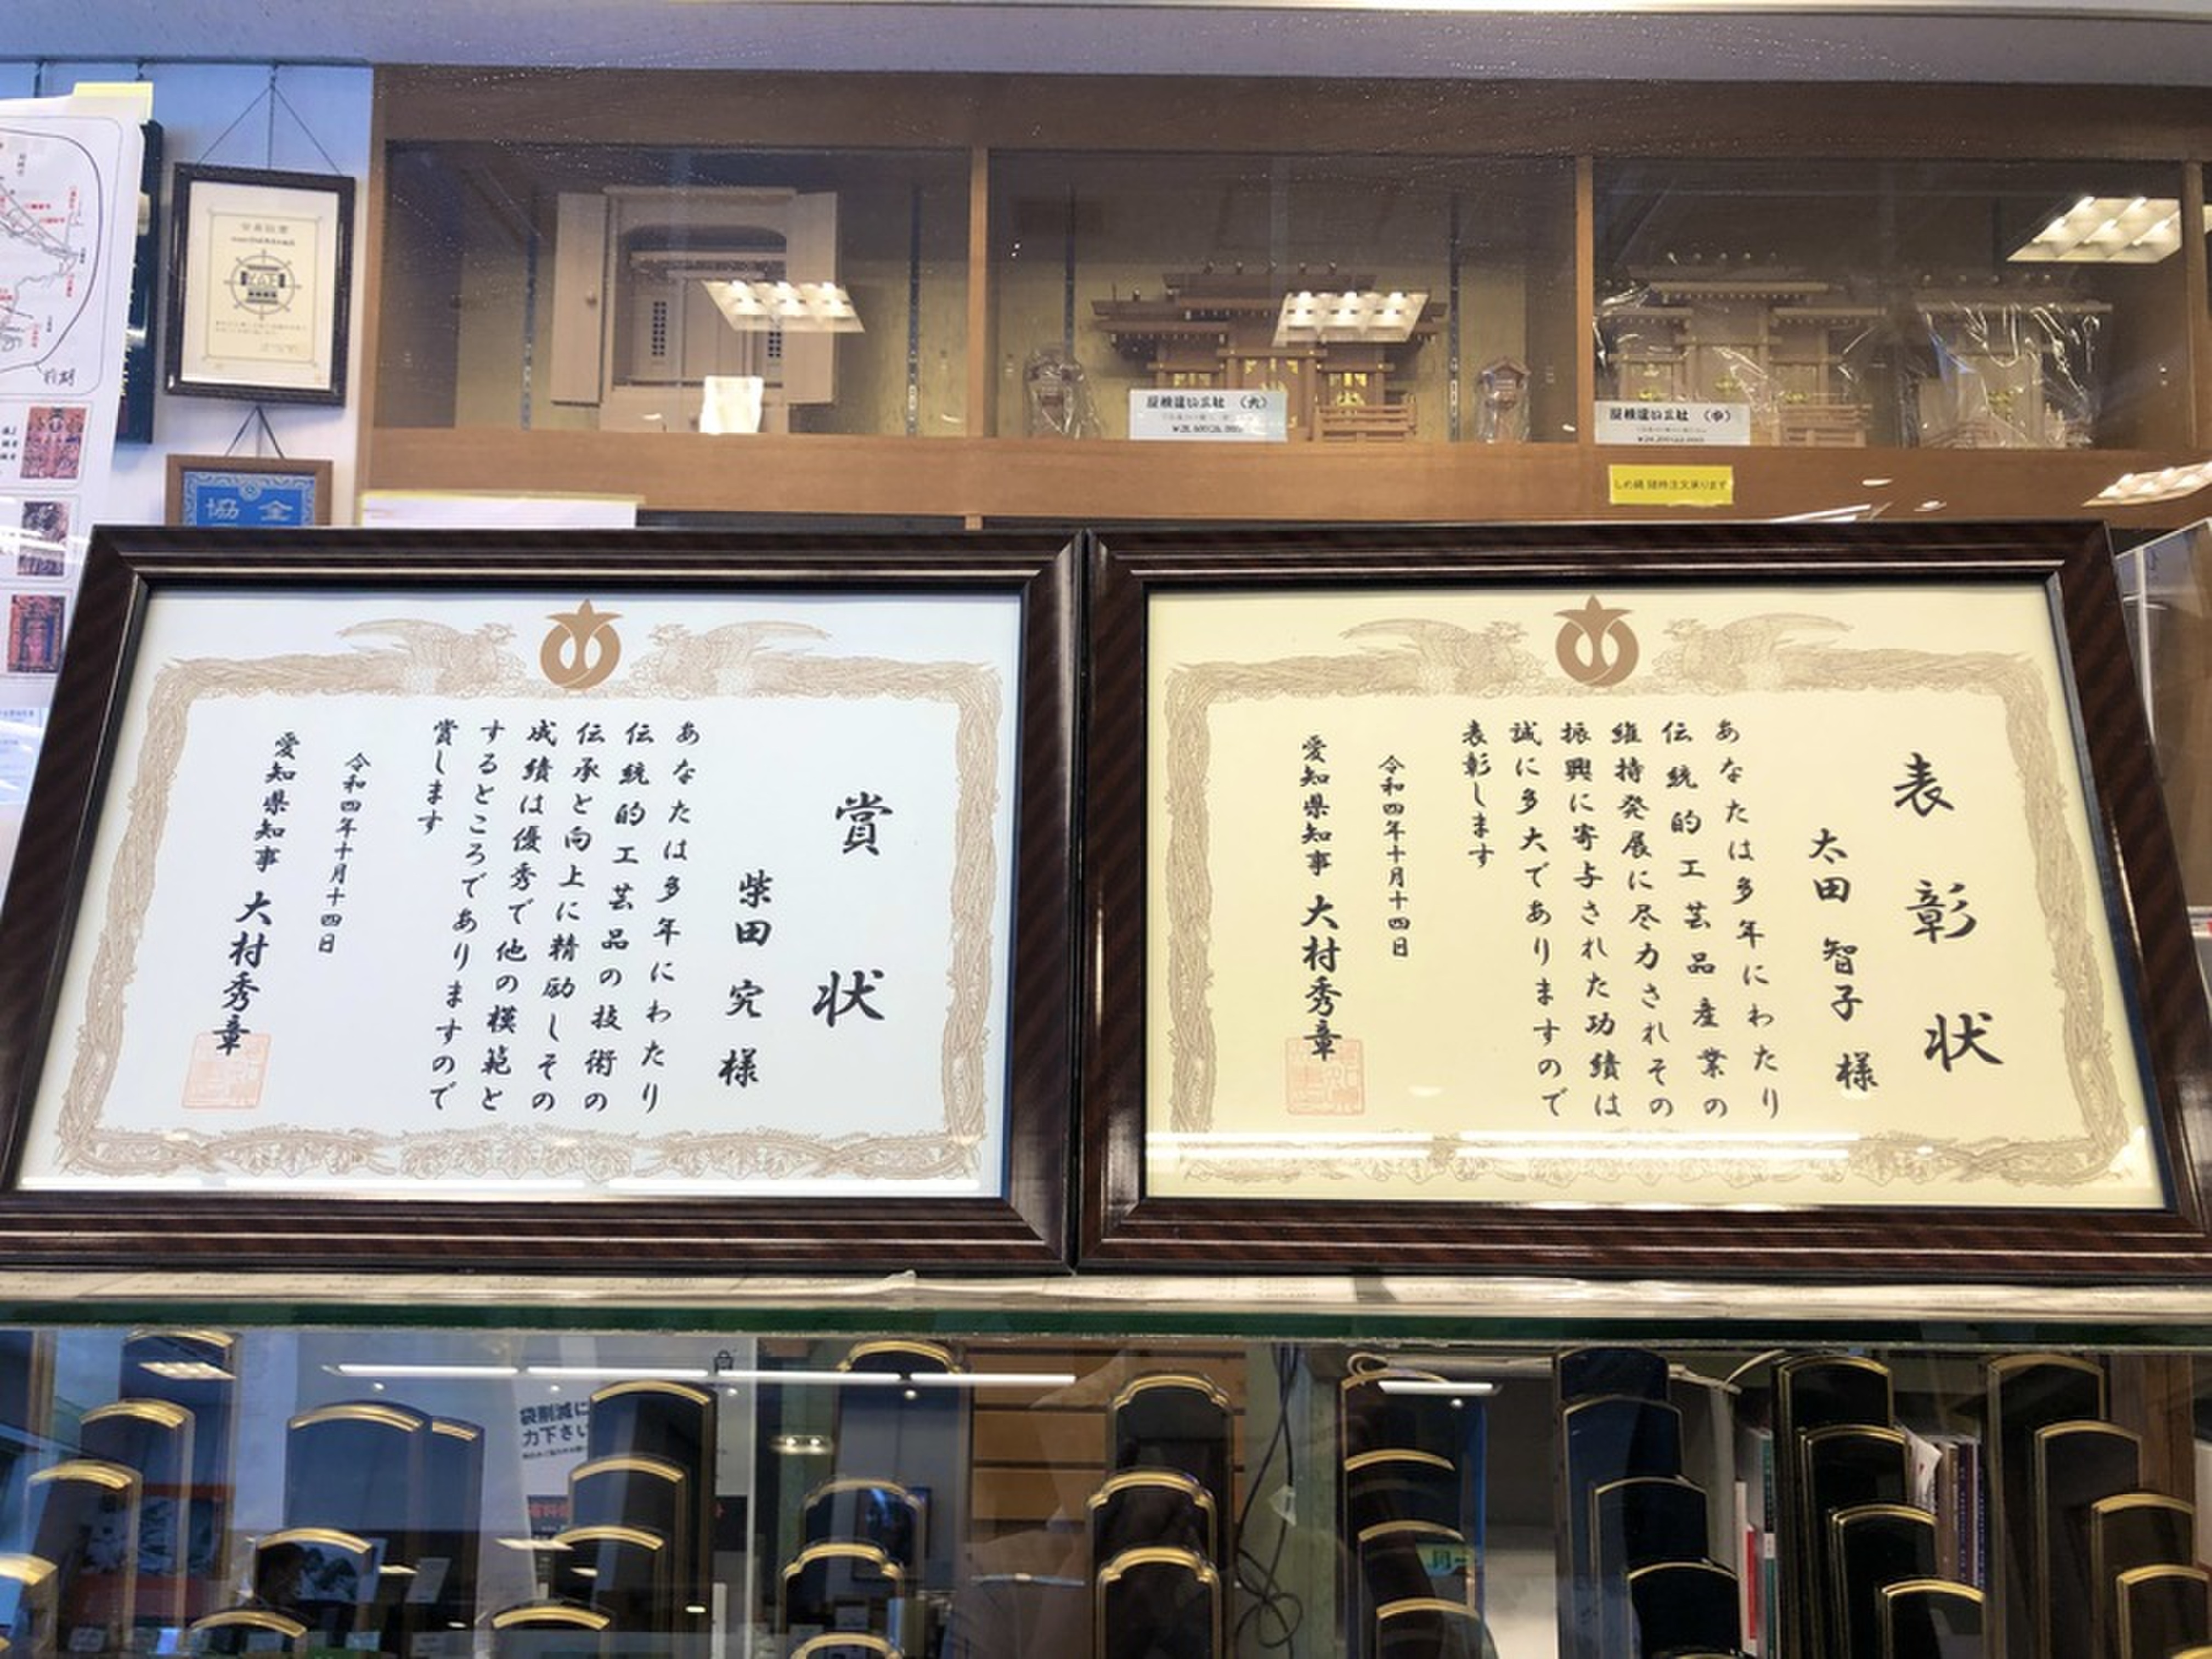 表彰状
太田 智子 様
あなたは多年にわたり
伝統的工芸品産業の
維持発展に尽力されその
振興に寄与された功績は
誠に多大でありますので
表彰します
令和四年十月十四日
愛知県知事 大村秀章
賞状
柴田 究 様
あなたは多年にわたり
伝統的工芸品の技術の
伝承と向上に精励しその
成績は優秀で他の模範と
するところでありますので
賞します
令和四年十月十四日
愛知県知事 大村秀章
屋根違い三社 (大)
屋根違い三社 (中)
しめ縄 随時注文承ります
協 全
袋削減に
力下さい